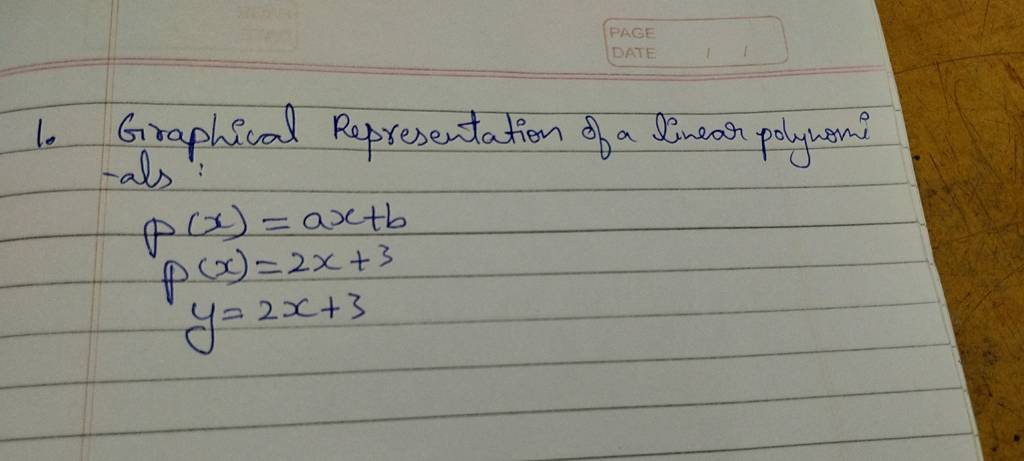 PAGE
DATE / /
1. Graphical Representation of a linear polynomi
-als :
p(x) = ax+b
p(x) = 2x + 3
y = 2x + 3